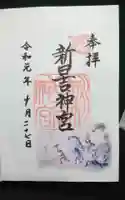 奉拝
新日吉神宮
令和元年 十月二十七日